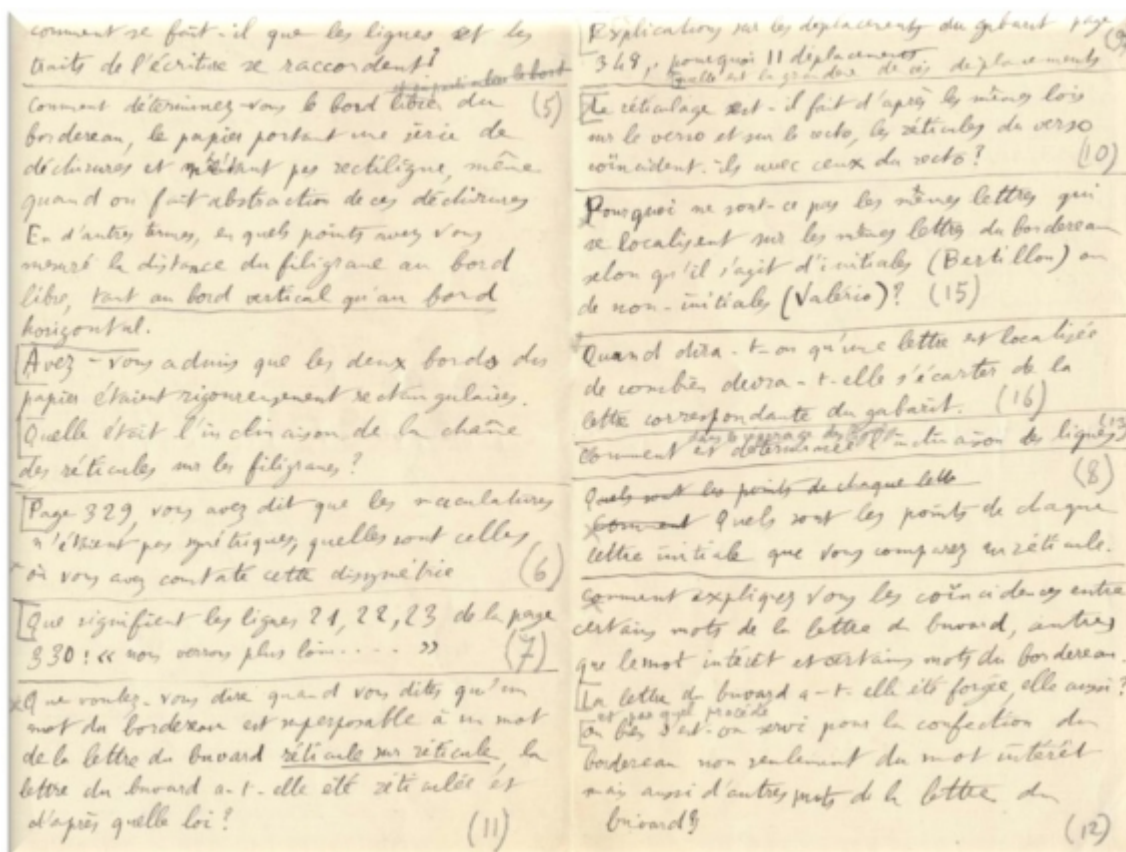 comment se fait-il que les lignes et les
traits de l'écriture se raccordent?
comment déterminez-vous le bord libre du (5)
bordereau, le papier portant une série de
déchirures et n'étant pas rectiligne, même
quand on fait abstraction de ces déchirures
En d'autres termes, en quels points avez vous
mesuré la distance du filigrane au bord
libre, tant au bord vertical qu'au bord
horizontal.
Avez-vous admis que les deux bords du
papier étaient rigoureusement rectangulaires.
Quelle était l'inclinaison de la chaîne
des réticules sur les filigranes?
Page 329, vous avez dit que les maculatures
n'étaient pas symétriques, quelles sont celles
où vous avez constaté cette dissymétrie (6)
Que signifient les lignes 21, 22, 23 de la page
330: « nous verrons plus loin..... » (7)
Que voulez-vous dire quand vous dites qu'un
mot du bordereau est superposable à un mot
de la lettre du buvard réticule sur réticule, la
lettre du buvard a-t-elle été réticulée et
d'après quelle loi? (11)
Explications sur les déplacements du gabarit page (9)
348, pourquoi 11 déplacements
quelle est la grandeur de ces déplacements
Le réticulage est-il fait d'après les mêmes lois
sur le verso et sur le recto, les réticules du verso
coïncident-ils avec ceux du recto? (10)
Pourquoi ne sont-ce pas les mêmes lettres qui
se localisent sur les mêmes lettres du bordereau
selon qu'il s'agit d'initiales (Bertillon) ou
de non-initiales (Valério)? (15)
Quand dira-t-on qu'une lettre est localisée
de combien devra-t-elle s'écarter de la
lettre correspondante du gabarit. (16)
comment est déterminée l'inclinaison des lignes
(8)
Quels sont les points de chaque lettre
Comment Quels sont les points de chaque
lettre initiale que vous comparez au réticule.
comment expliquez vous les coïncidences entre
certains mots de la lettre du buvard, autres
que le mot intérêt et certains mots du bordereau.
La lettre du buvard a-t-elle été forgée, elle aussi?
et par quel procédé
ou bien s'est-on servi pour la confection du
bordereau non seulement du mot intérêt
mais aussi d'autres mots de la lettre du
buvard? (12)